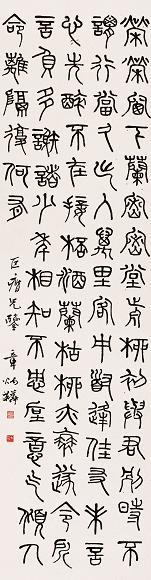 榮榮窗下蘭密密堂前柳初與君別時不
謂行當久出門萬里客中道逢佳友未言
心先醉不在接桮酒蘭枯柳亦衰遂令此
言負多謝諸少年相知不忠厚意气傾人
命離隔復何有
兄鑒 章炳麟